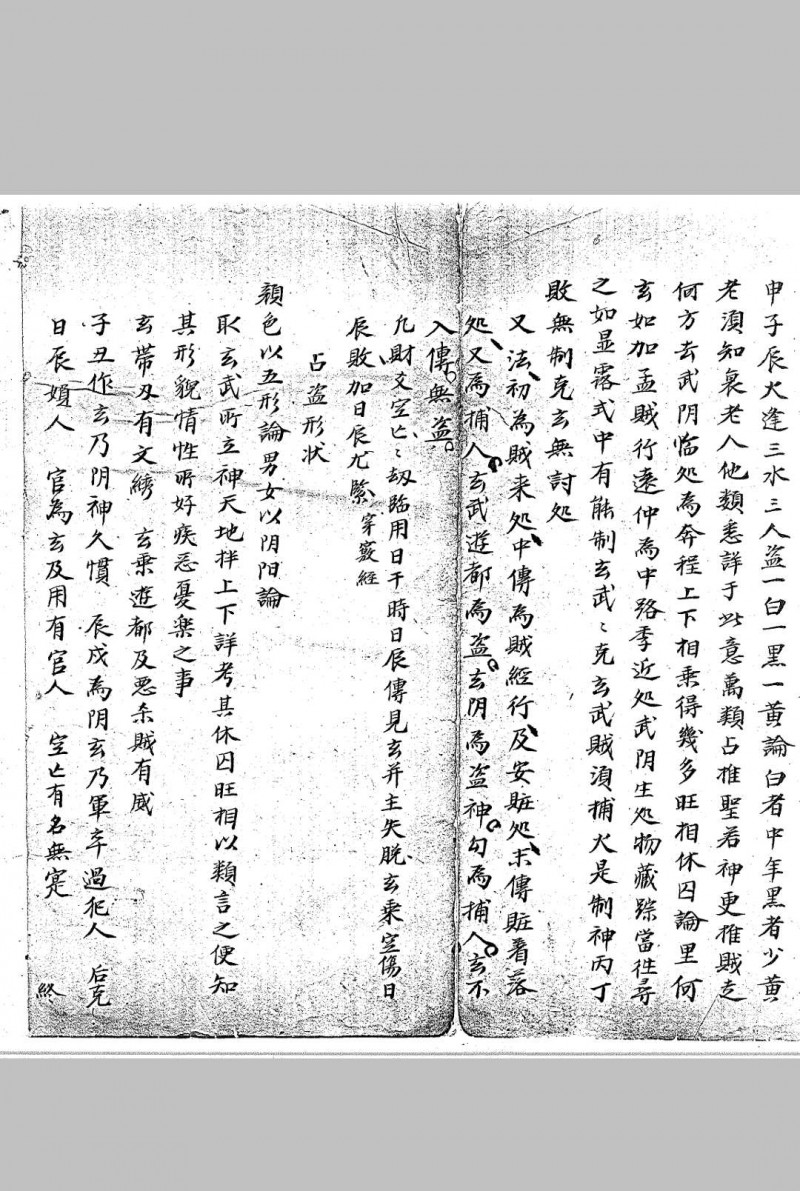 申子辰火逢三水三人盗一白一黑一黄論白者中年黑者少黄
老湏知衰老人他類悉詳于此意萬類占推聖若神更推賊走
何方去武阴临処為奔程上下相乗得幾多旺相休囚論里何
玄如加孟賊行遠仲為中路季近処武阴生処物藏踪當徃尋
之如显露式中有能制玄武〻克玄武賊湏捕火是制神丙丁
敗無制克玄無討処
又法初為賊来処中傳為賊經行及安賍処末傳賍着落
処又為捕人玄武遊都為盗玄阴為盗神勾為捕人玄不
入傳無盗
凢財爻空亡〻劫臨用日干時日辰傳見玄并主失脱玄乗空傷日
辰敗加日辰尤緊 穿窽經
占盗形状
顔色以五形論男女以阴阳論
取玄武所立神天地拌上下詳考其休囚旺相以類言之便知
其形貌情性所好疾忌憂楽之事
玄帶刄有文綉 玄乗遊都及悪杀賊有威
子丑作玄乃阴神久慣 辰戌為阴玄乃軍卒過犯人 后克
日辰媍人 官為玄及用有官人 空亡有名無寔 終